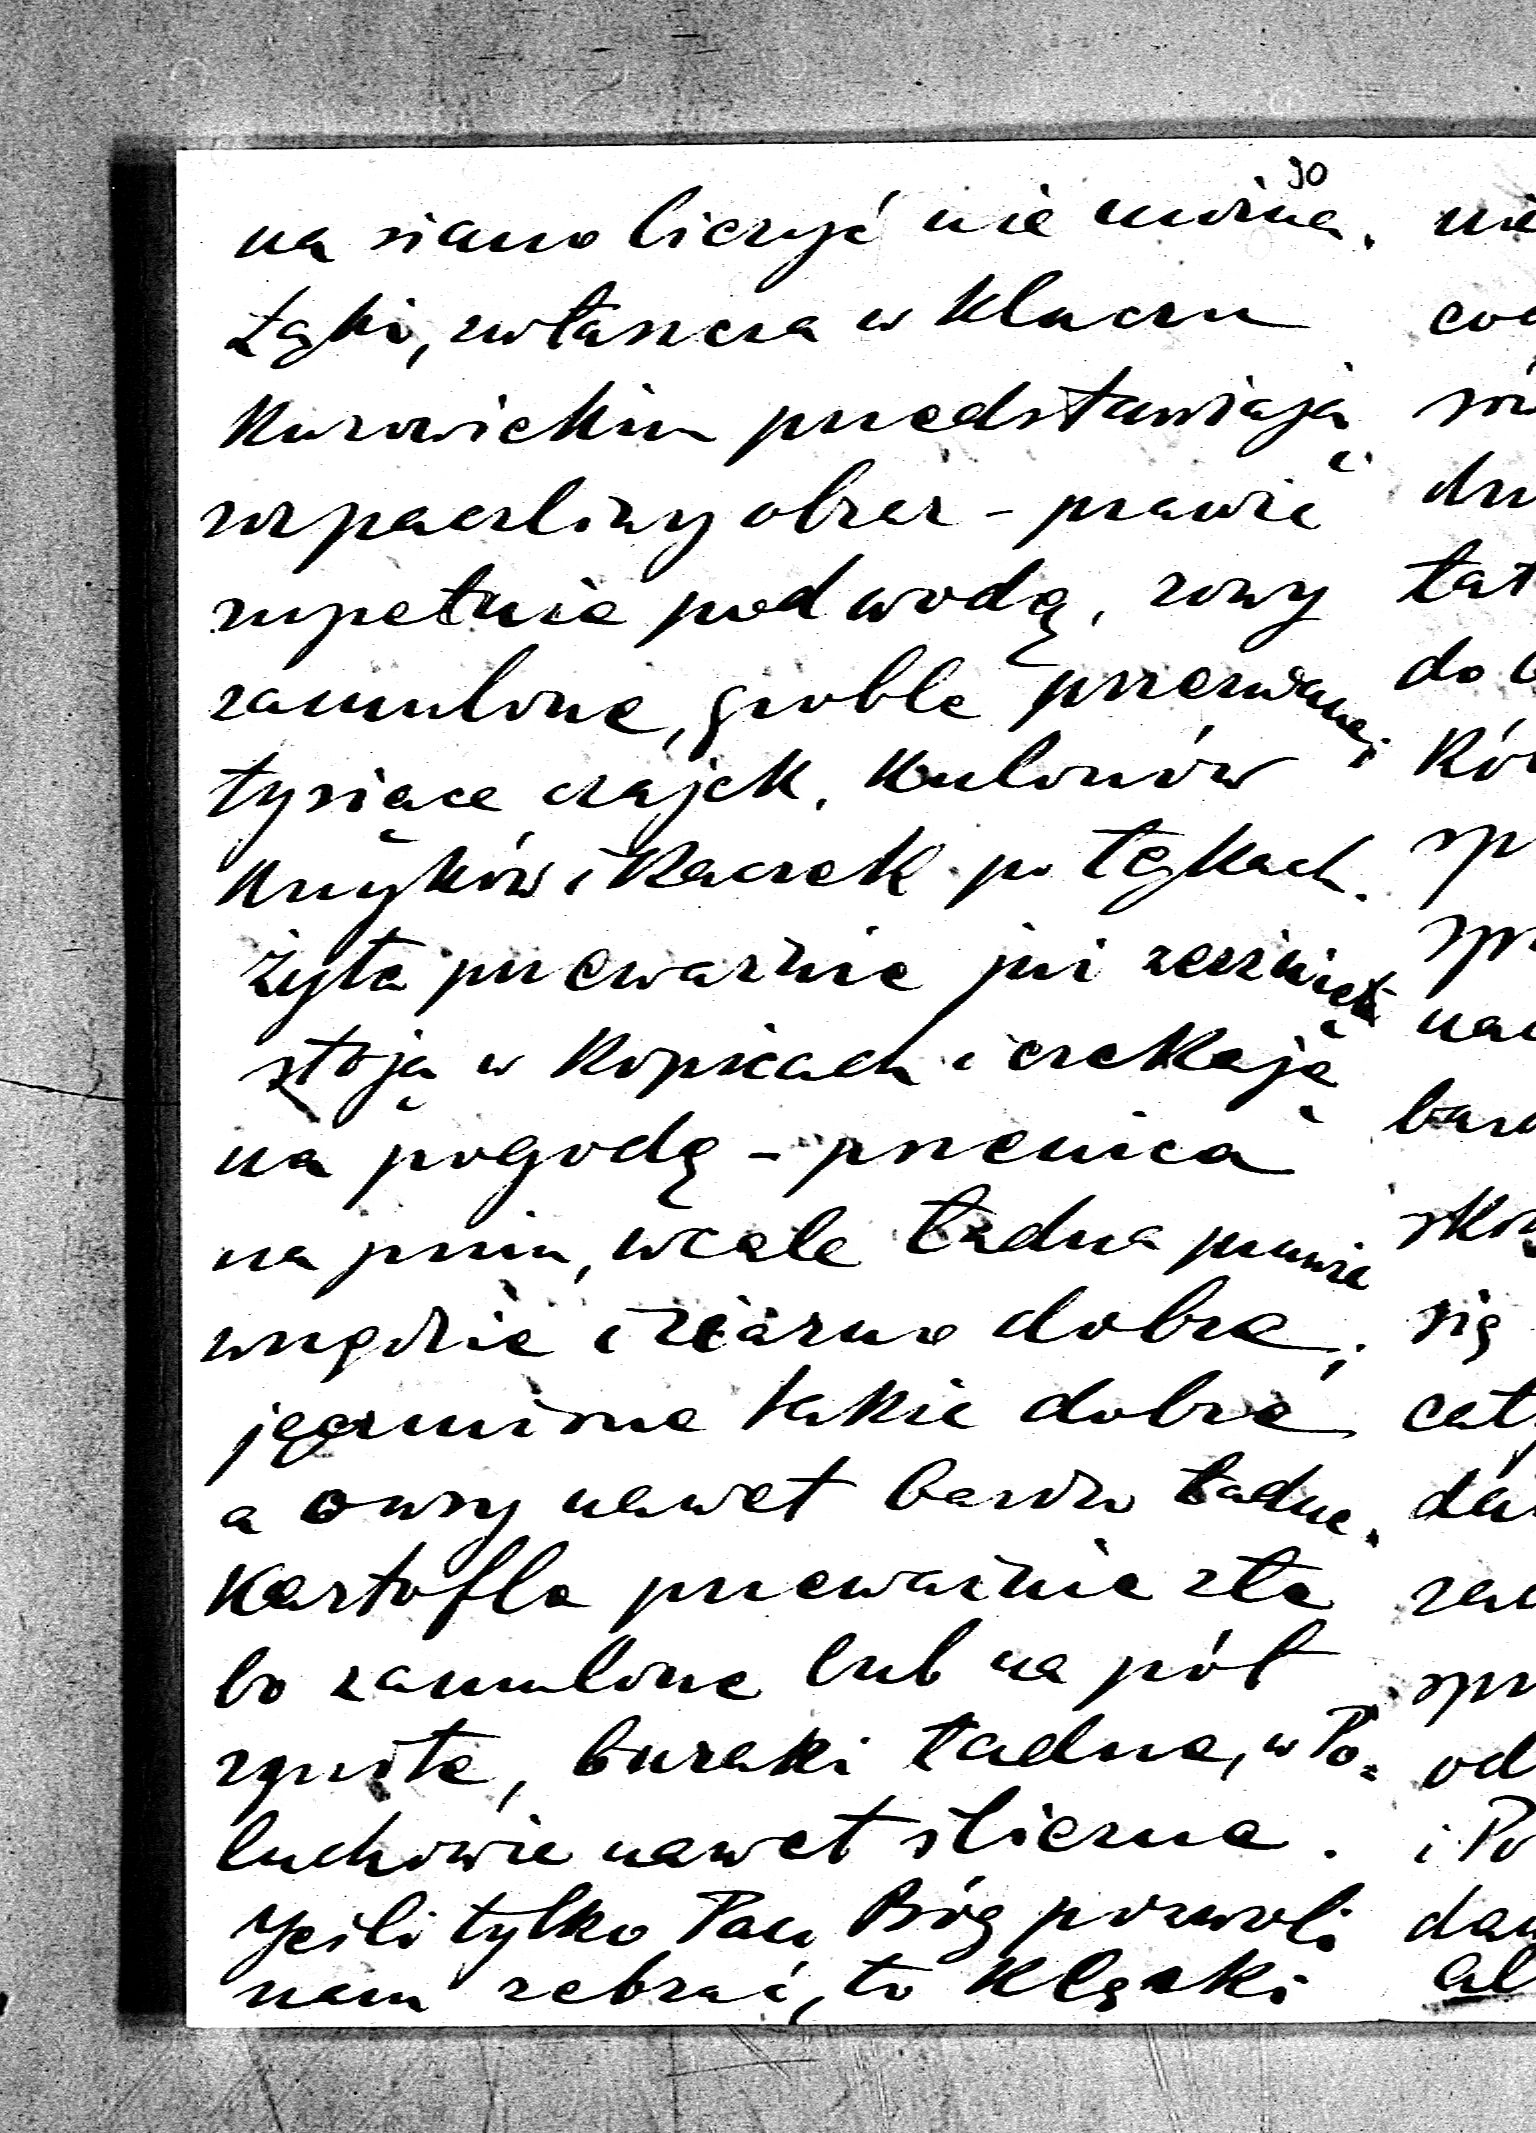 90
na siano liczyć nie można.
Łąki, zwłaszcza w kluczu
Kurowickim przedstawiają
rozpaczliwy obraz - prawie
zupełnie pod wodą, rowy
zamulone, groble przerwane i
tysiące czajek, kulonów
krzyków i kaczek po łąkach.
Żyta przeważnie już zerżnięte
stoją w kopicach i czekają
na pogodę - pszenica
na pniu, wcale ładna prawie
wszędzie i ziarno dobre,
jęczmiona takie dobre,
a owsy nawet bardzo ładne.
Kartofle przeważnie złe
bo zamulone lub na pół
zgniłe, buraki ładne, w Po=
luchowie nawet śliczne.
Jeśli tylko Pan Bóg pozwoli
nam zebrać, to klęski
nie
tat
do
spr
się
cał
od
i Po